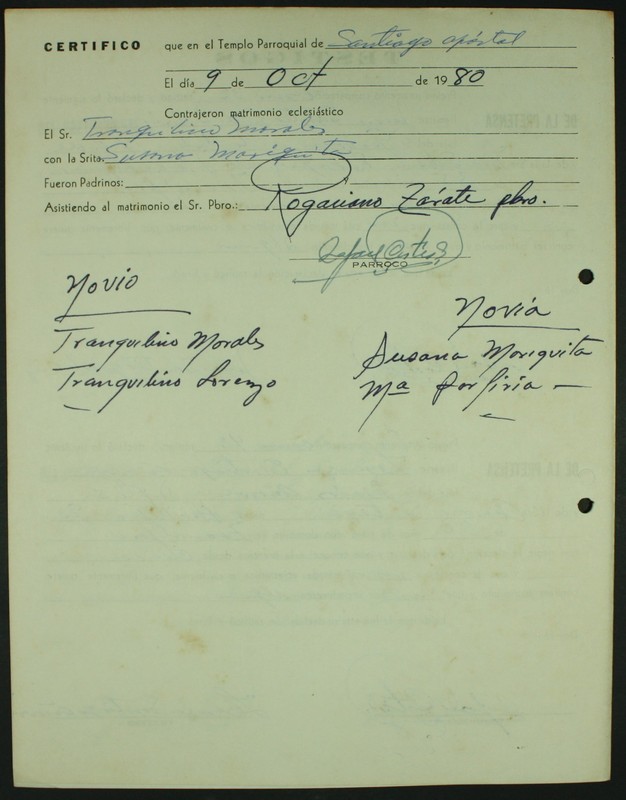 CERTIFICO que en el Templo Parroquial de Santiago apóstol
El día 9 de Oct de 1980
Contrajeron matrimonio eclesiástico
El Sr. Tranquilino Morales
con la Srita. Susana Moriquita
Fueron Padrinos:
Asistiendo al matrimonio el Sr. Pbro.: Rogaciano Zárate pbro.
Rafael
PARROCO
Novio
Tranquilino Morales
Tranquilino Lorenzo
Novia
Susana Moriquita
Ma Porfiria —